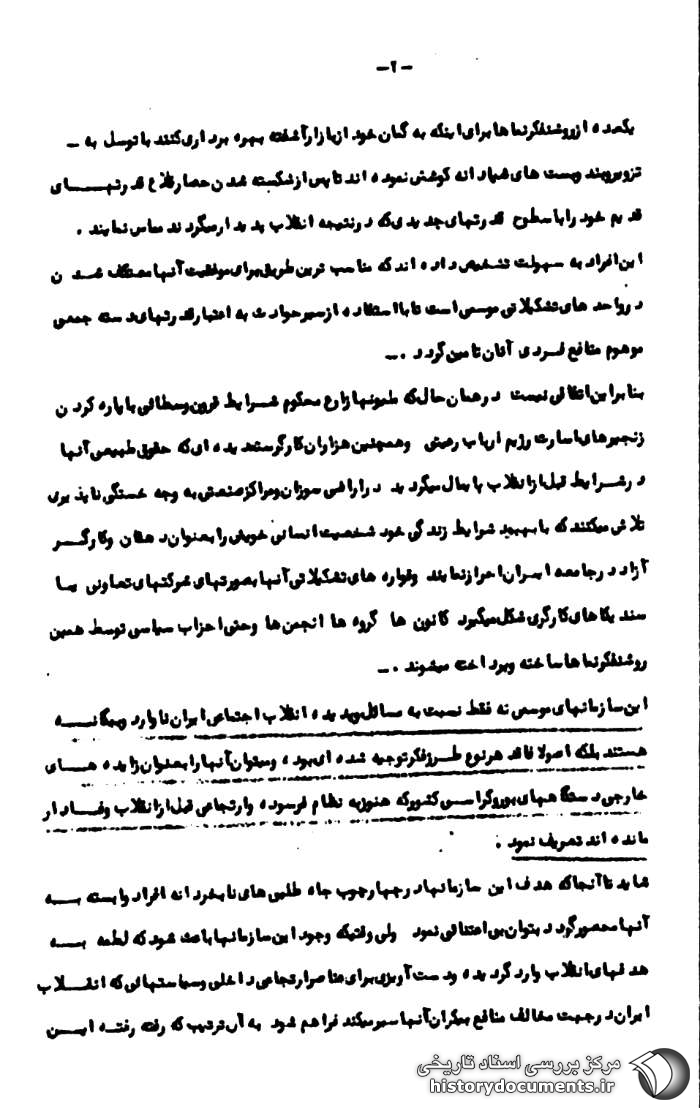 -۲-
یکعده از روشنفکرنماها برای اینکه به گمان خود از بازار آشفته بهره برداری کنند با توسل به -
تزویر و بند و بست های شیادانه کوشش نموده اند تا پس از شکسته شدن حصار قلاع قدرتهــای
قدیم خود را با سطوح قدرتهای جدیدی که در نتیجه انقلاب پدیدار میگردند مماس نمایند .
این افراد به سهولت تشخیص داده اند که مناسب ترین طریق برای موفقیت آنها معتکف شدن
در واحدهای تشکیلاتی موسمی است تا با استفاده از سیر حوادث به اعتبار قدرتهای دسته جمعی
موهوم منافع فردی آنان تامین گردد .-
بنابراین اتفاقی نیست در همان حال که ملیونها زارع محکوم شرایط قرون وسطائی با پاره کردن
زنجیرهای اسارت رژیم ارباب رعیتی و همچنین هزاران کارگر ستمدیده ای که حقوق طبیعی آنها
در شرایط قبل از انقلاب پایمال میگردید در اراضی موزان و مراکز صنعتی به وجه خستگی ناپذیری
تلاش میکنند که با بهبود شرایط زندگی خود شخصیت انسانی خویش را بعنوان دهقان و کارگــر
آزاد در جامعه ایران احراز نمایند و قواره های تشکیلاتی آنها بصورتهای شرکتهای تعاونی یــا
سندیکاهای کارگری شکل میگیرد کانون ها گروه ها انجمن ها و حتی احزاب سیاسی توسط همین
روشنفکرنماها ساخته و پرداخته میشوند .-
این سازمانهای موسمی نه فقط نسبت به مسائل پدیده انقلاب اجتماعی ایران ناوارد و بیگانــه
هستند بلکه اصولا فاقد هر نوع طرز فکر توجیه شده ای بوده و میتوان آنها را بعنوان زایده هــای
خارجی دستگاههای بوروکراسی کشور که هنوز به نظام فرسوده و ارتجاعی قبل از انقلاب وفــادار
مانده اند تعریف نمود .
شاید تا آنجا که هدف این سازمانها در چهارچوب جاه طلبی های نابخردانه افراد وابسته بــه
آنها محصور گردد بتوان بی اعتنائی نمود ولی وقتیکه وجود این سازمانها باعث شود که لطمه بــه
هدفهای انقلاب وارد گردیده و دست آویزی برای عناصر ارتجاعی داخلی و سیاستهائی که انقــلاب
ایران در جهت مخالف منافع بیکران آنها سیر میکند فراهم شود به آن ترتیب که رفته رفتــه ایــن
مرکز بررسی اسناد تاریخی
historydocuments.ir